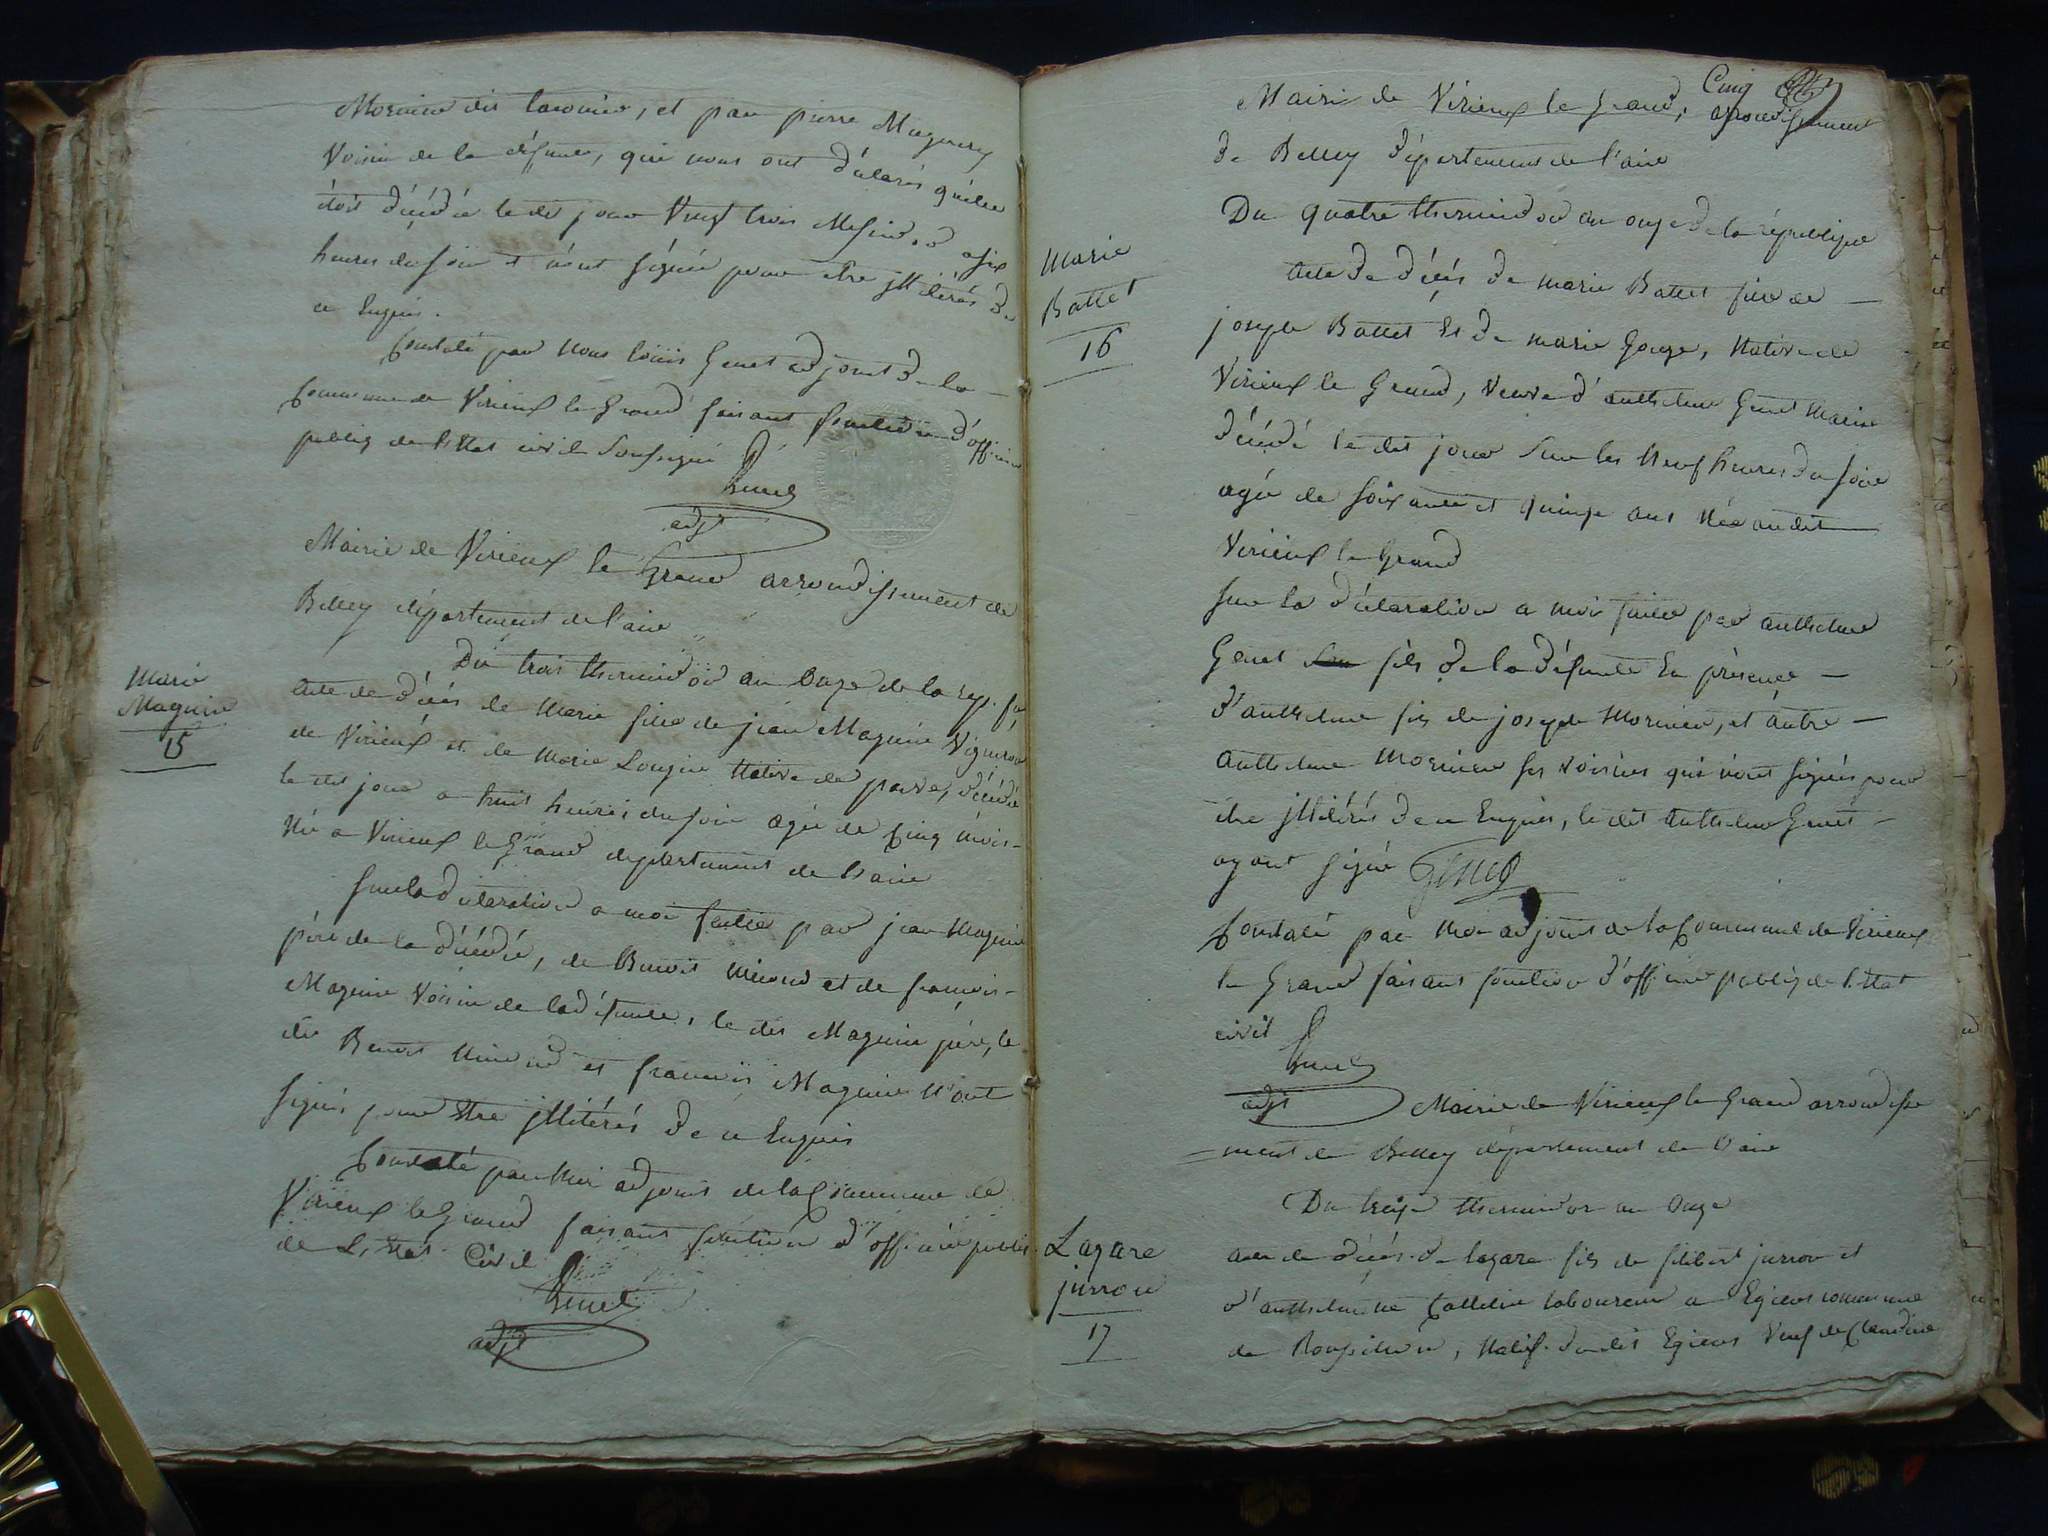 Mornieu dit laronier, et par pierre Maguerey
Voisin de la défunte, qui nous ont déclarés qu'elle
étoit décédée le dit jour Vingt trois Messidor a six
heures du soir et n'ont signés pour etre jllitérés de
ce Enquis.
Constaté par Nous Louis Genet adjoint de la
Commune de Virieux le Grand faisant fonction d'officier
public de l'Etat civil soussigné
Genet
adjt
Mairie de Virieux le Grand arrondissement de
Belley département de l'ain
Marie
Maguin
15
Du trois thermidor an onze de la rep. fse
acte de décés de Marie fille de jean Maguin Vigneron
de Virieux et de Marie Longin Native de decédé
le dit jour a huit heures du soir agée de Cinq mois
Née a Virieux le Grand departement de l'ain
sur la declaration a moi faitte par jean Maguin
père de la décédée, de Benoit Minod et de francois
Maguin Voisin de la défunte, le dit Maguin père, le
dit Benoit Minod et francois Maguin n'ont
signés pour Etre jllitérés de ce Enquis
Constaté par Moi adjoint de la Commune de
Virieux le Grand faisant fonction d'officier public
de l'Etat Civil
Genet
adjt
Cinq
Mairie de Virieux le Grand, arrondissement
de Belley département de l'ain
Du quatre thermidor an onze de la république
Marie
Battet
16
acte de décés de marie Battet fille de
joseph Battet Et de marie Gouge, Native de
Virieux le Grand, veuve d'anthelme Genet Marie
décédé le dit jour sur les Neuf heures du soir
agée de soixante et quinze ans Née audit
Virieux le Grand
sur la déclaration a moi faitte par anthelme
Genet son fils de la défunte En présence
d'anthelme fils de joseph Mornieu, et autre
anthelme Mornieu ses voisins qui n'ont signés pour
etre jllitérés de ce Enquis, le dit anthelme Genet
ayant signé Genet
Constaté par Moi adjoint de la Commune de Virieux
le Grand faisant fonction d'officier public de l'Etat
civil
Genet
adjt
Mairie de Virieux le Grand arrondisse
=ment de Belley département de l'ain
Du treize thermidor an Onze
Lazare
jurron
17
acte de décés de lazare fils de filibert jurron et
d'anthelmine Cattelin laboureur a Egieux commune
de Rossillon, Natif dudit Egieux Veuf de Claudine